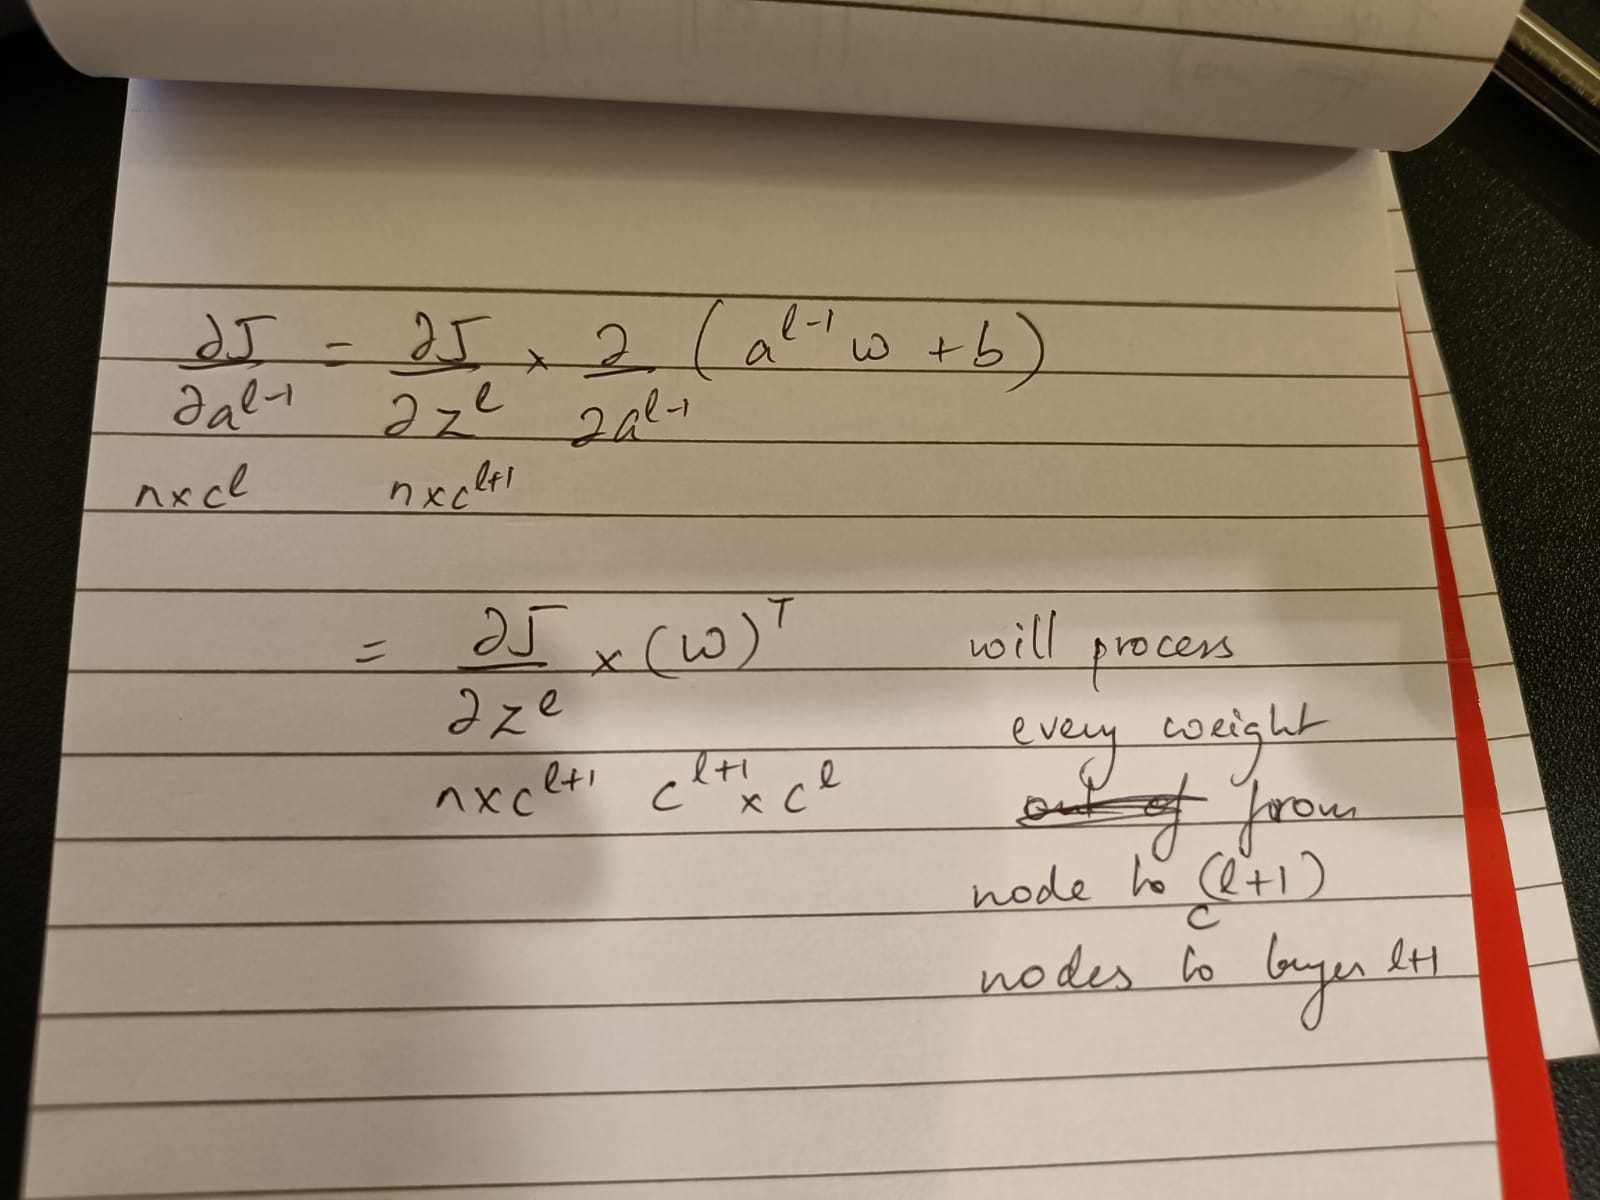 ∂J/∂a^{l-1} = ∂J/∂z^l × ∂/∂a^{l-1} (a^{l-1} w + b)
n×c^l n×c^{l+1}
= ∂J/∂z^l × (w)^T
n×c^{l+1} c^{l+1} × c^l
will process
every weight
from
node to c^{(l+1)}
nodes to layer l+1